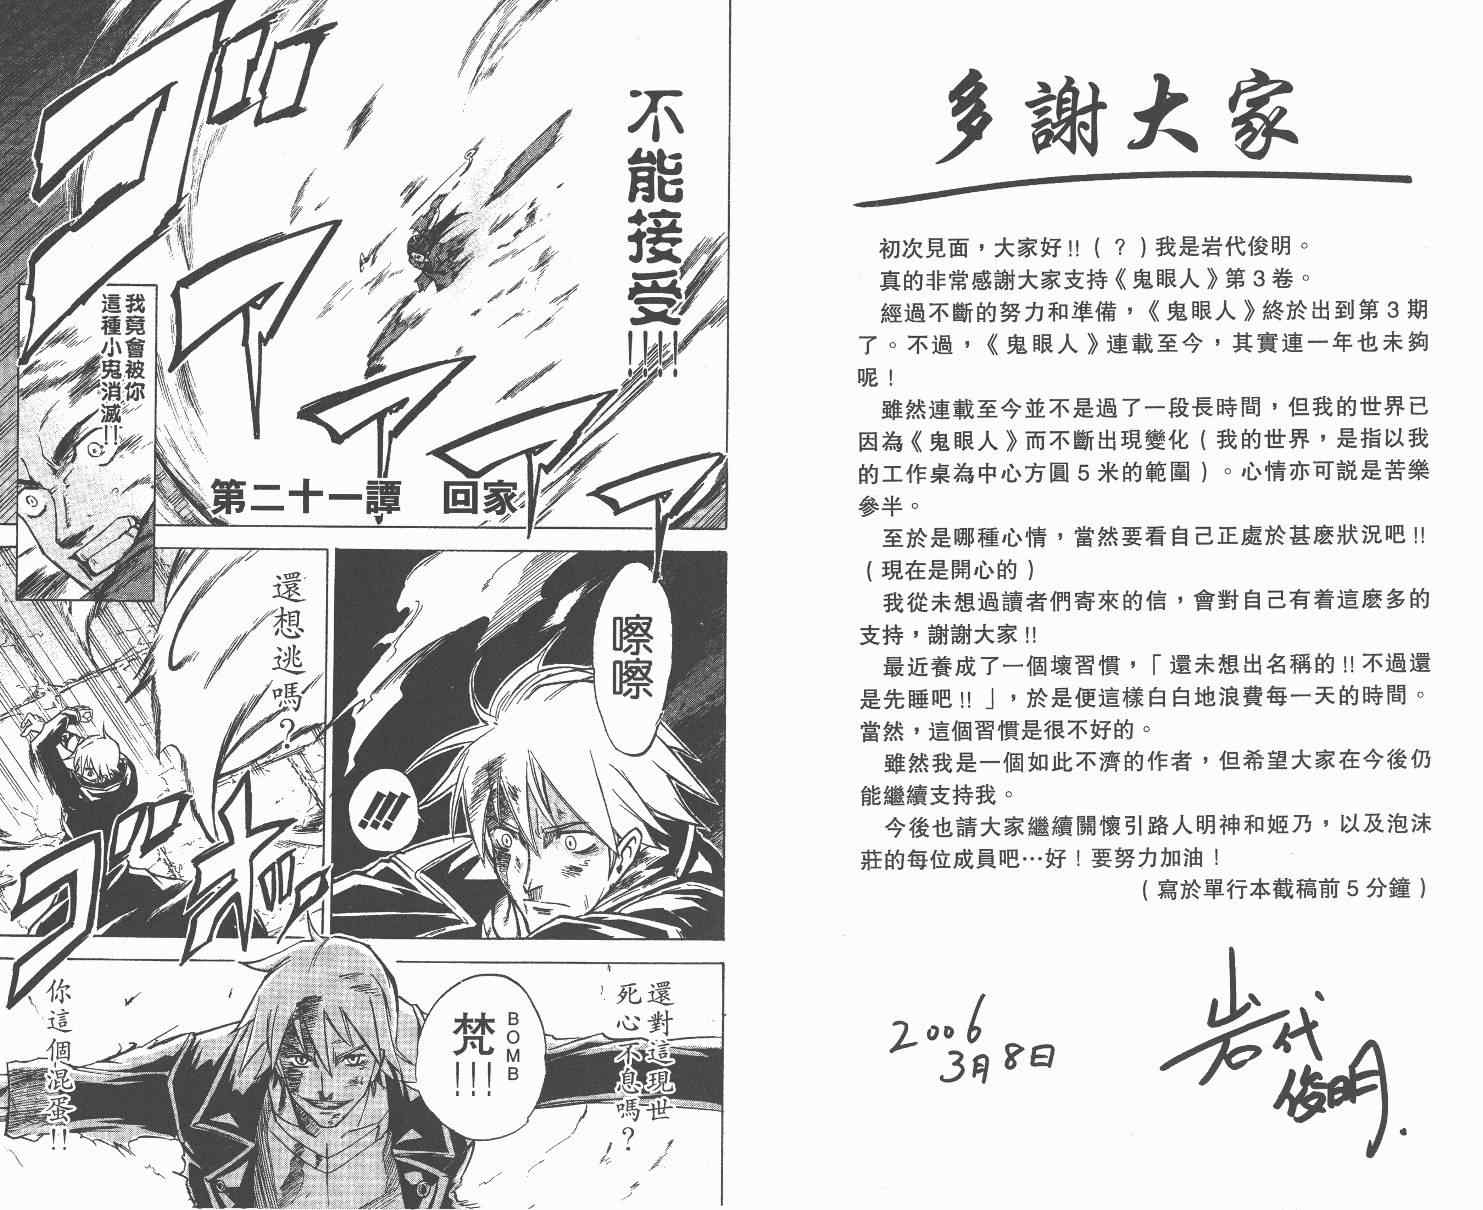 多謝大家
初次見面，大家好!!（？）我是岩代俊明。
真的非常感謝大家支持《鬼眼人》第3卷。
經過不斷的努力和準備，《鬼眼人》終於出到第3期
了。不過，《鬼眼人》連載至今，其實連一年也未夠
呢！
雖然連載至今並不是過了一段長時間，但我的世界已
因為《鬼眼人》而不斷出現變化（我的世界，是指以我
的工作桌為中心方圓5米的範圍）。心情亦可說是苦樂
參半。
至於是哪種心情，當然要看自己正處於甚麼狀況吧!!
（現在是開心的）
我從未想過讀者們寄來的信，會對自己有着這麼多的
支持，謝謝大家!!
最近養成了一個壞習慣，「還未想出名稱的!!不過還
是先睡吧!!」，於是便這樣白白地浪費每一天的時間。
當然，這個習慣是很不好的。
雖然我是一個如此不濟的作者，但希望大家在今後仍
能繼續支持我。
今後也請大家繼續關懷引路人明神和姬乃，以及泡沫
莊的每位成員吧…好！要努力加油！
（寫於單行本截稿前5分鐘）
2006
3月8日
岩代
俊明.
不能接受!!!!
ゴゴゴ
アアアアア
我竟會被你
這種小鬼消滅!!
第二十一譚　回家
嚓嚓
!!!
還想逃嗎？
ゴオ
還對這現世
死心不息嗎？
BOMB
梵!!!
你這個混蛋!!